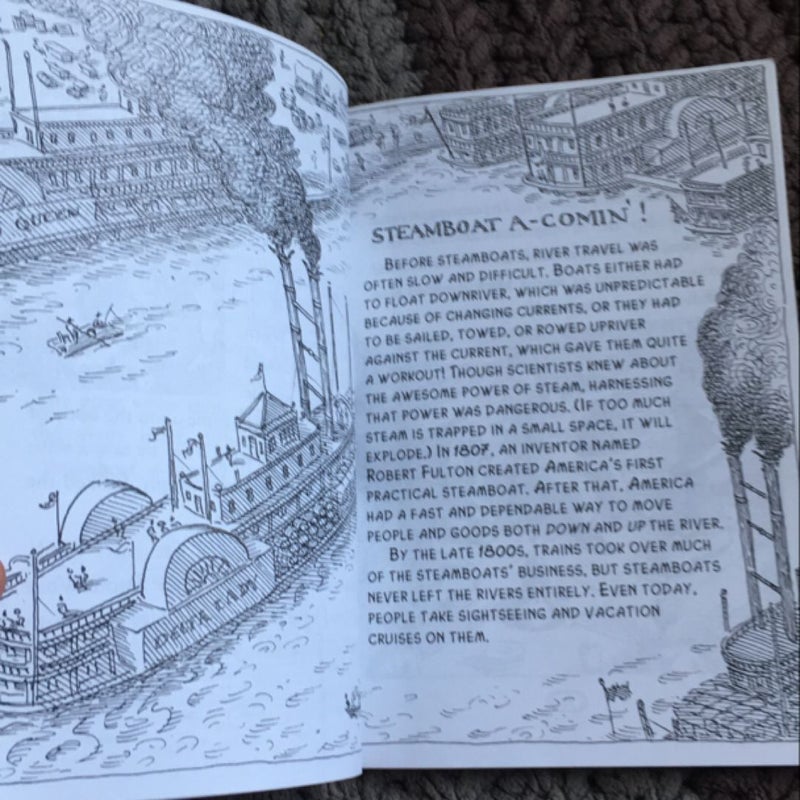 QUEEN
DELTA LADY
STEAMBOAT A-COMIN'!
BEFORE STEAMBOATS, RIVER TRAVEL WAS
OFTEN SLOW AND DIFFICULT. BOATS EITHER HAD
TO FLOAT DOWNRIVER, WHICH WAS UNPREDICTABLE
BECAUSE OF CHANGING CURRENTS, OR THEY HAD
TO BE SAILED, TOWED, OR ROWED UPRIVER
AGAINST THE CURRENT, WHICH GAVE THEM QUITE
A WORKOUT! THOUGH SCIENTISTS KNEW ABOUT
THE AWESOME POWER OF STEAM, HARNESSING
THAT POWER WAS DANGEROUS. (IF TOO MUCH
STEAM IS TRAPPED IN A SMALL SPACE, IT WILL
EXPLODE.) IN 1807, AN INVENTOR NAMED
ROBERT FULTON CREATED AMERICA'S FIRST
PRACTICAL STEAMBOAT. AFTER THAT, AMERICA
HAD A FAST AND DEPENDABLE WAY TO MOVE
PEOPLE AND GOODS BOTH DOWN AND UP THE RIVER.
BY THE LATE 1800S, TRAINS TOOK OVER MUCH
OF THE STEAMBOATS' BUSINESS, BUT STEAMBOATS
NEVER LEFT THE RIVERS ENTIRELY. EVEN TODAY,
PEOPLE TAKE SIGHTSEEING AND VACATION
CRUISES ON THEM.